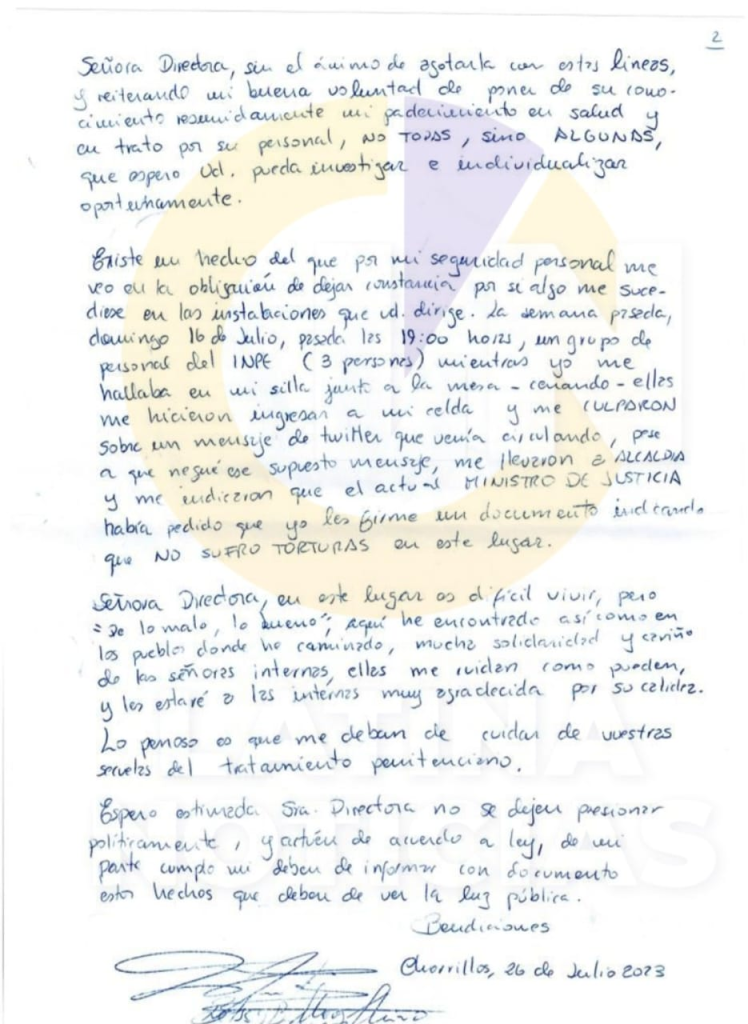 2
Señora Directora, sin el ánimo de agotarla con estas líneas,
y reiterando mi buena voluntad de poner de su cono-
cimiento resumidamente mi padecimiento en salud y
en trato por su personal, NO TODAS, sino ALGUNAS,
que espero Ud. pueda investigar e individualizar
oportunamente.
Existe un hecho del que por mi seguridad personal me
veo en la obligación de dejar constancia por si algo me suce-
diese en las instalaciones que ud. dirige. La semana pasada,
domingo 16 de Julio, pasada las 19:00 horas, un grupo de
personal del INPE (3 personas) mientras yo me
hallaba en mi silla junto a la mesa - cenando - ellas
me hicieron ingresar a mi celda y me CULPARON
sobre un mensaje de twitter que venía circulando, pese
a que negué ese supuesto mensaje, me llevaron a ALCALDIA
y me indicaron que el actual MINISTRO DE JUSTICIA
había pedido que yo les firme un documento indicando
que NO SUFRO TORTURAS en este lugar.
Señora Directora, en este lugar es difícil vivir, pero
"De lo malo, lo bueno", aquí he encontrado así como en
los pueblos donde he caminado, mucha solidaridad y cariño
de las señoras internas, ellas me cuidan como pueden,
y les estaré a las internas muy agradecida por su calidez.
Lo penoso es que me deban de cuidar de vuestras
secuelas del tratamiento penitenciario.
Espero estimada Sra. Directora no se dejen presionar
políticamente, y actúen de acuerdo a ley, de mi
parte cumplo mi deber de informar con documento
estos hechos que deben de ver la luz pública.
Bendiciones
Chorrillos, 26 de Julio 2023
LATINA
NOTICIAS